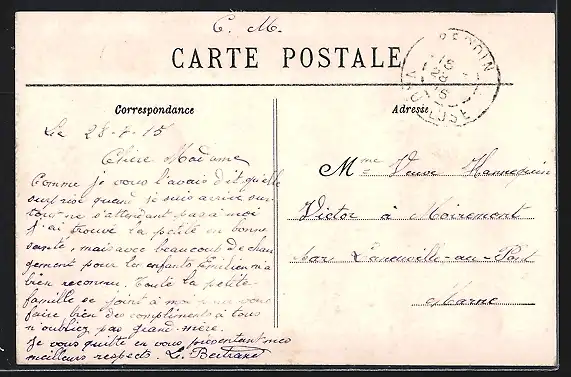 C. M.
CARTE POSTALE
BEDOIN
15
28
15
VAUCLUSE
Correspondance
Adresse
Le 28-8-15
Chère Madame
Comme je vous l'avais dit quelle
surprise quand je suis arrivé sur-
tout ne s'attendant pas à moi
j'ai trouvé la petite en bonne
santé, mais avec beaucoup de chan
gement pour les enfants Emilien m'a
bien reconnu. Toute la petite
famille se joint à moi pour vous
faire bien des compliments à tous
n'oubliez pas grand-mère.
Je vous quitte en vous présentant mes
meilleurs respects. L. Bertrand
Mme Veuve Hannequin
Victor à Moiremont
par Laneuville-au-Pont
Marne